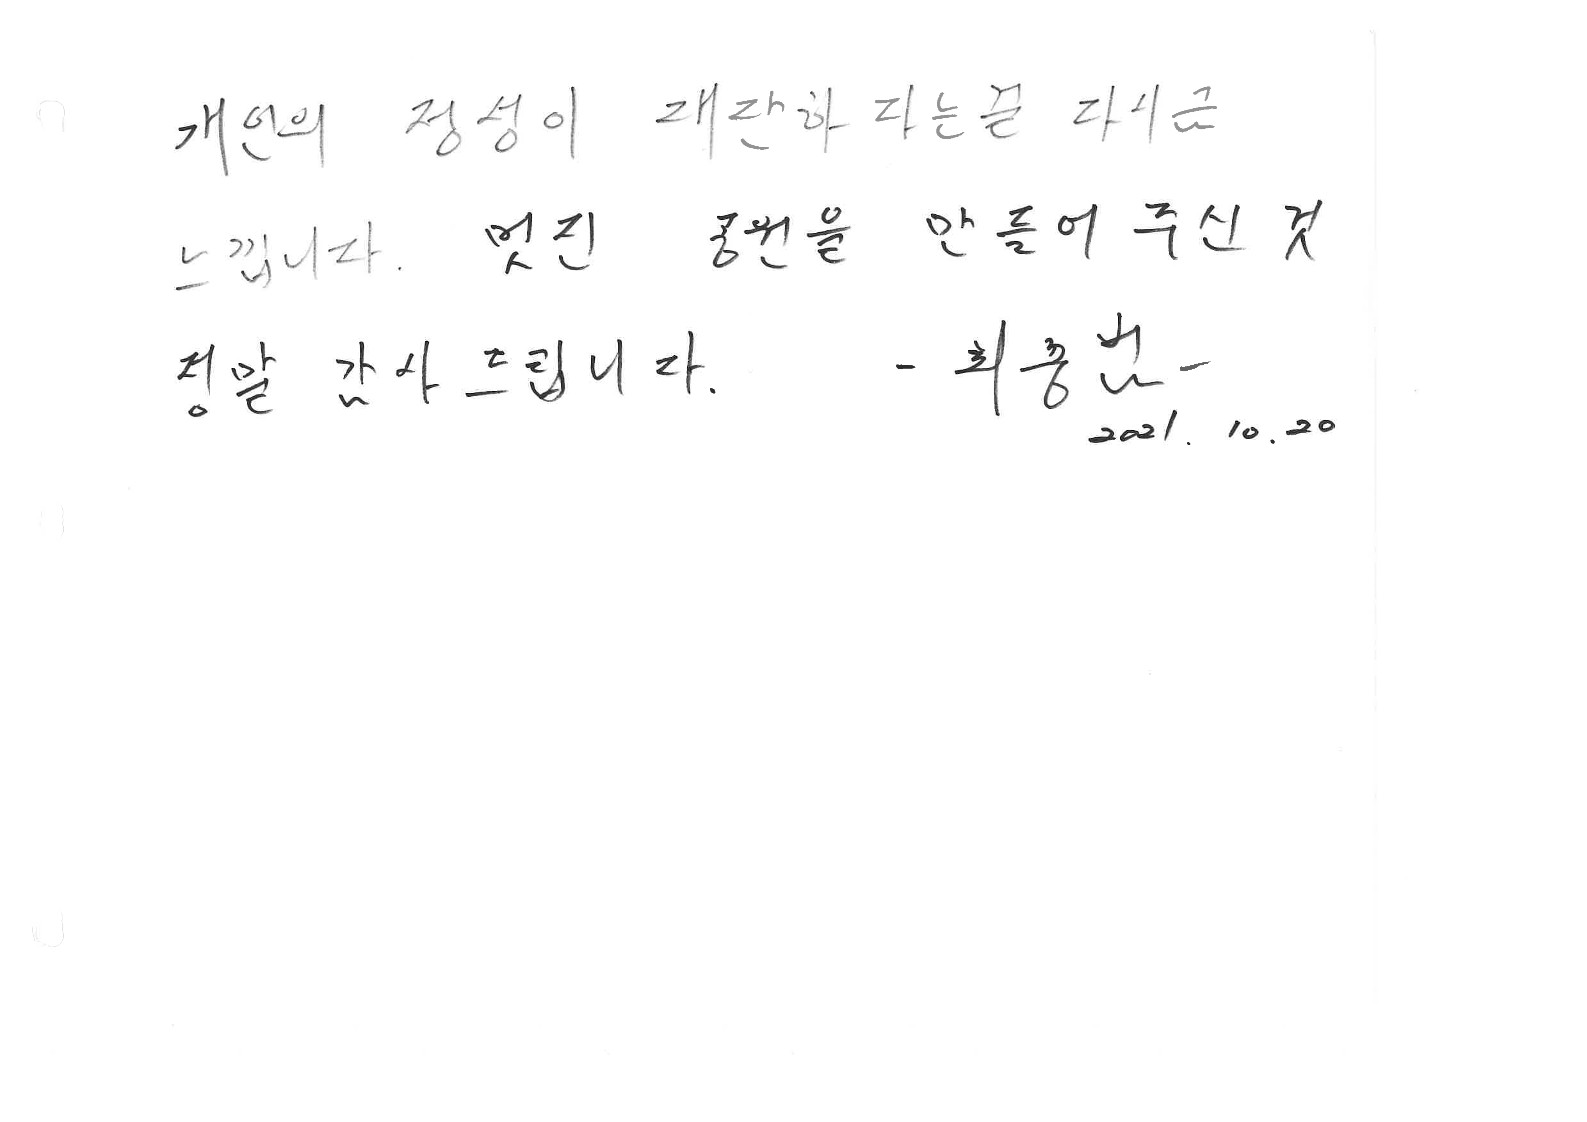 개인의 정성이 대단하다는걸 다시금
느낍니다. 멋진 공원을 만들어 주신 것
정말 감사드립니다. - 최종번 -
2021. 10. 20